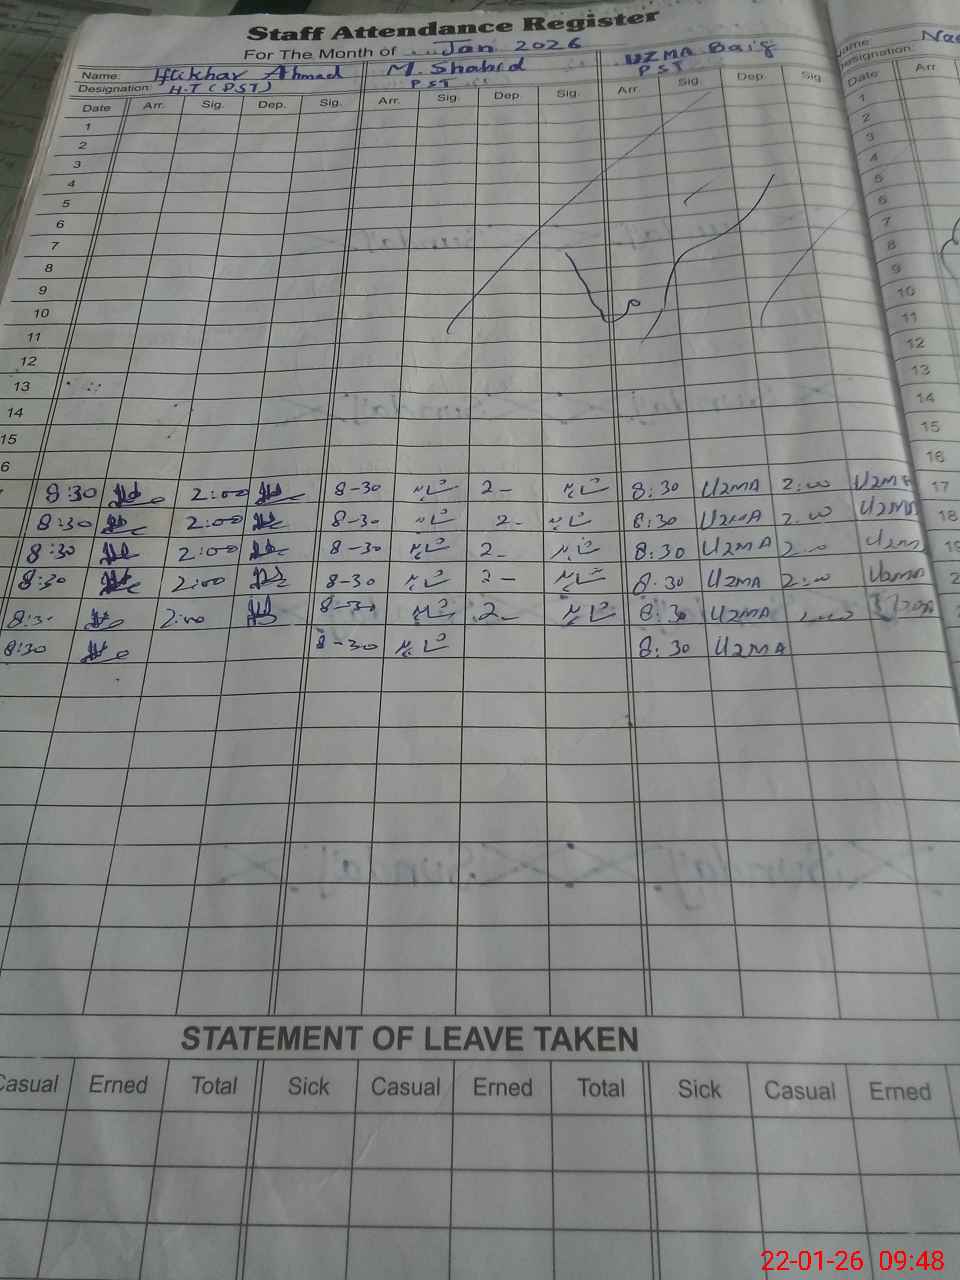 Staff Attendance Register
For The Month of Jan 2026
Name: Iftikhar Ahmad M. Shahid UZMA Baig Name: Nae
Designation: H.T (PST) PST PST Designation:
Date Arr. Sig. Dep. Sig. Arr. Sig. Dep. Sig. Arr. Sig. Dep. Sig. Date Arr.
1 1
2 2
3 3
4 4
5 5
6 6
7 7
8 8
9 9
10 10
11 11
12 12
13 13
14 14
15 15
6 16
8:30 2:00 8-30 شاہد 2- شاہد 8:30 UZMA 2:00 UZMA 17
8:30 2:00 8-30 شاہد 2- شاہد 8:30 UZMA 2:00 UZMA 18
8:30 2:00 8-30 شاہد 2- شاہد 8:30 UZMA 2:00 UZM 19
8:30 2:00 8-30 شاہد 2- شاہد 8:30 UZMA 2:00 UZMA 2
8:30 2:00 8-30 شاہد 2- شاہد 8:30 UZMA
8:30 8-30 شاہد 8:30 UZMA
STATEMENT OF LEAVE TAKEN
Casual Erned Total Sick Casual Erned Total Sick Casual Erned
22-01-26 09:48